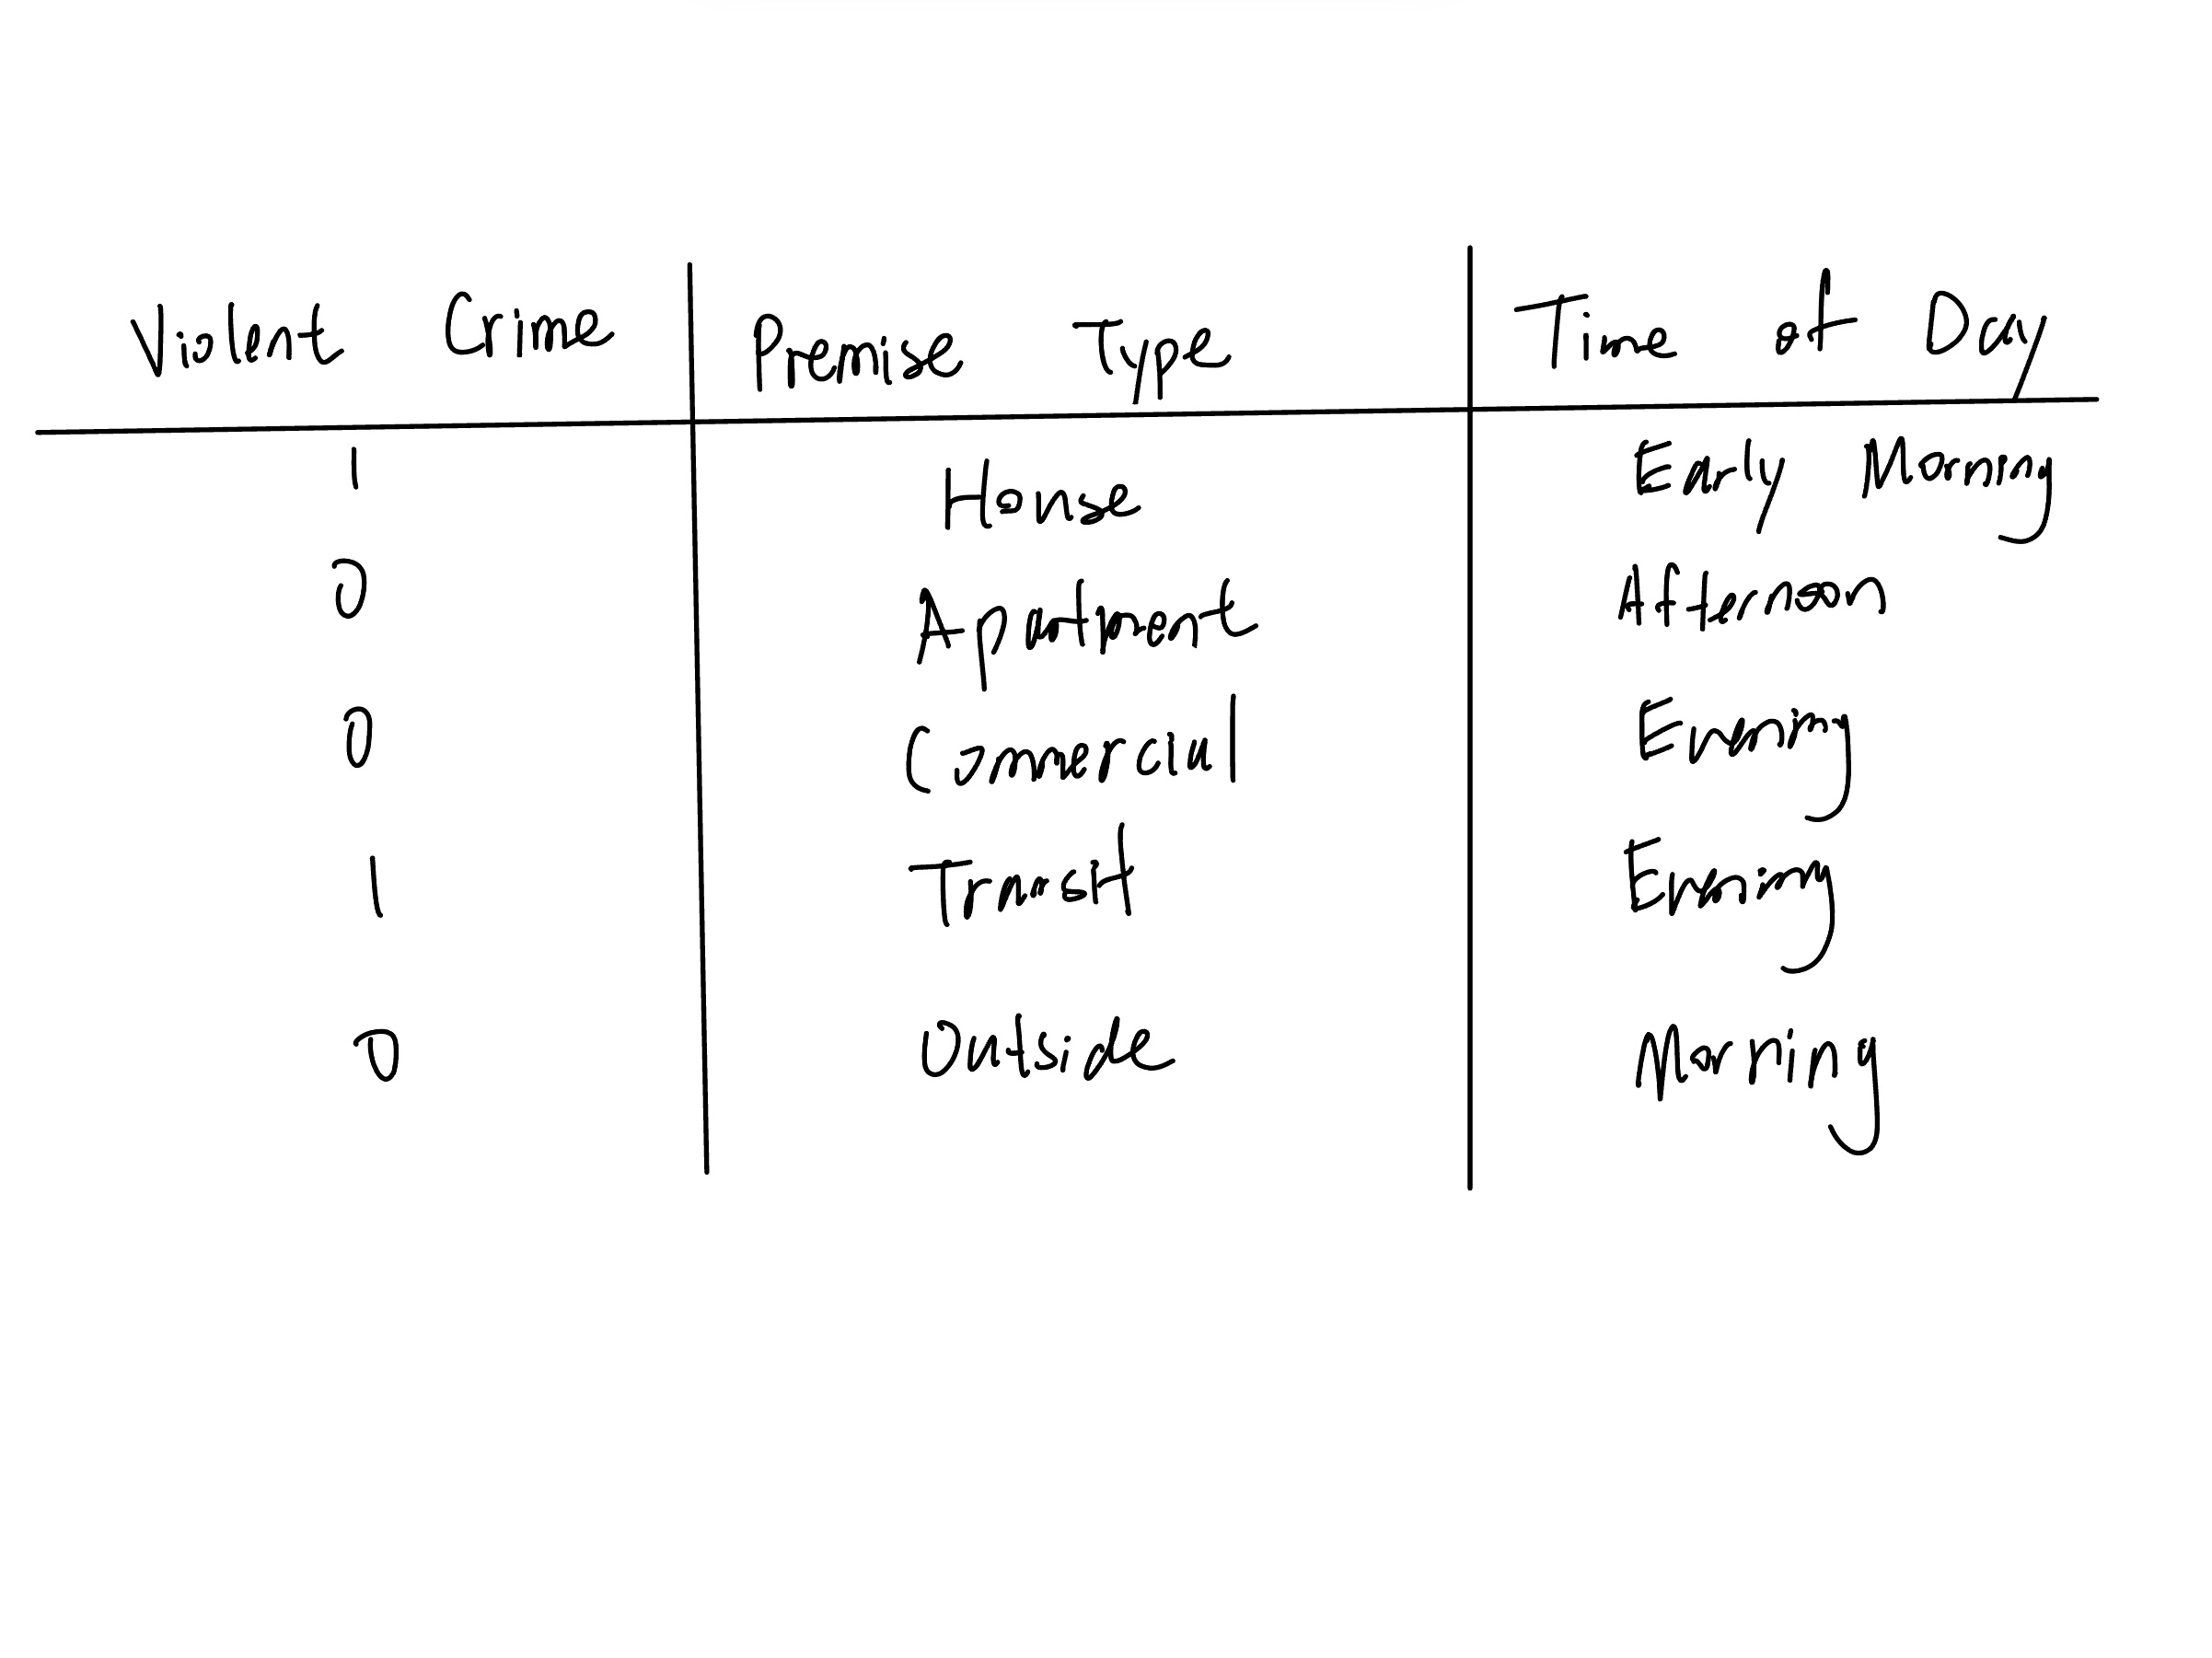 Violent Crime Premise Type Time of Day
1 House Early Morning
0 Apartment Afternoon
0 Commercial Evening
1 Transit Evening
0 Outside Morning